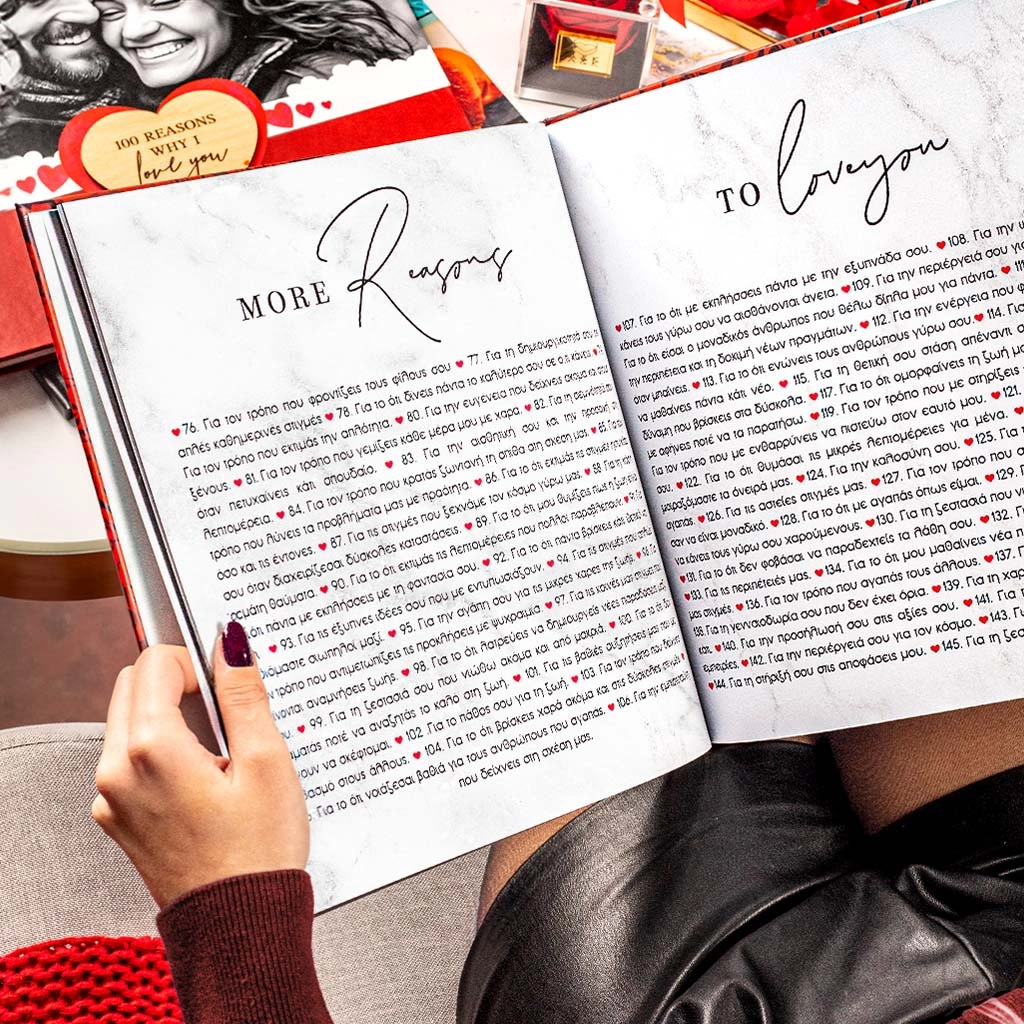 100 REASONS
WHY I
love you
MORE Reasons
♥76. Για τον τρόπο που φροντίζεις τους φίλους σου ♥ 77. Για τη δημιουργικότητά σου
απλές καθημερινές στιγμές ♥ 78. Για το ότι δίνεις πάντα το καλύτερο σου σε ό,τι κάνεις ♥
Για τον τρόπο που εκτιμάς την απλότητα. ♥ 80. Για την ευγένεια που δείχνεις ακόμα και στου
ξένους. ♥ 81. Για τον τρόπο που γεμίζεις κάθε μέρα μου με χαρά. ♥ 82. Για τη
όταν πετυχαίνεις κάτι σπουδαίο. ♥ 83. Για την αισθητική σου και την προσοχή στη
λεπτομέρεια. ♥ 84. Για τον τρόπο που κρατάς ζωντανή τη σπίθα στη σχέση μας. ♥ 85. Για
τρόπο που λύνεις τα προβλήματά μας με πραότητα. ♥ 86. Για το ότι εκτιμάς τις στιγμές
όσο και τις έντονες. ♥ 87. Για τις στιγμές που ξεχνάμε τον κόσμο γύρω μας. ♥ 88 Για την
σου όταν διαχειρίζεσαι δύσκολες καταστάσεις. ♥ 89. Για το ότι μου θυμίζεις πως η ζωή
θαύματα. ♥ 90. Για το ότι εκτιμάς τις λεπτομέρειες που πολλοί παραβλέπουν. ♥
ότι πάντα με εκπλήσσεις με τη φαντασία σου. ♥ 92. Για το ότι πάντα βρίσκεις κάτι
♥ 93. Για τις έξυπνες ιδέες σου που με εντυπωσιάζουν. ♥ 94. Για τις στιγμές που
σιωπηλοί μαζί. ♥ 95. Για την αγάπη σου για τις μικρές χαρές της ζωής. ♥ 96. Για
τρόπο που αντιμετωπίζεις τις προκλήσεις με ψυχραιμία. ♥ 97. Για τις κοινές μας στιγμές που
αναμνήσεις ζωής. ♥ 98. Για το ότι λατρεύεις να δημιουργείς νέες παραδόσεις
♥ 99. Για τη ζεστασιά σου που νιώθω ακόμα και από μακριά. ♥ 100. Για το ότι δεν
ποτέ να αναζητάς το καλό στη ζωή. ♥ 101. Για τις βαθιές συζητήσεις μας που
να σκέφτομαι. ♥ 102. Για το πάθος σου για τη ζωή. ♥ 103. Για τον τρόπο που δείχνεις
στους άλλους. ♥ 104. Για το ότι βρίσκεις χαρά ακόμα και στις δύσκολες στιγμές. ♥
Για το ότι νοιάζεσαι βαθιά για τους ανθρώπους που αγαπάς. ♥ 106. Για την εμπιστοσύνη
που δείχνεις στη σχέση μας.
TO love you
♥107. Για το ότι με εκπλήσσεις πάντα με την εξυπνάδα σου. ♥108. Για την
κάνεις τους γύρω σου να αισθάνονται άνετα. ♥109. Για την περιέργειά σου για
Για το ότι είσαι ο μοναδικός άνθρωπος που θέλω δίπλα μου για πάντα. ♥
την περιπέτεια και τη δοκιμή νέων πραγμάτων. ♥ 112. Για την ενέργεια που
όταν μπαίνεις. ♥ 113. Για το ότι ενώνεις τους ανθρώπους γύρω σου. ♥ 114. Για
να μαθαίνεις πάντα κάτι νέο. ♥ 115. Για τη θετική σου στάση απέναντι
δύναμη που βρίσκεις στα δύσκολα. ♥ 117. Για το ότι ομορφαίνεις τη ζωή
με αφήνεις ποτέ να τα παρατήσω. ♥ 119. Για τον τρόπο που με στηρίζεις
Για τον τρόπο που με ενθαρρύνεις να πιστεύω στον εαυτό μου. ♥ 121.
σου. ♥122. Για το ότι θυμάσαι τις μικρές λεπτομέρειες για μένα. ♥
μοιραζόμαστε τα όνειρά μας. ♥ 124. Για την καλοσύνη σου. ♥ 125. Για το
αγαπάς. ♥ 126. Για τις αστείες στιγμές μας. ♥ 127. Για τον τρόπο που
σαν να είναι μοναδικό. ♥ 128. Για το ότι με αγαπάς όπως είμαι. ♥ 129.
να κάνεις τους γύρω σου χαρούμενους. ♥ 130. Για τη ζεστασιά που
♥131. Για το ότι δεν φοβάσαι να παραδεχτείς τα λάθη σου. ♥ 132.
♥133. Για τις περιπέτειές μας. ♥ 134. Για το ότι μου μαθαίνεις νέα
μας στιγμές. ♥ 136. Για τον τρόπο που αγαπάς τους άλλους. ♥ 137.
138. Για τη γενναιοδωρία σου που δεν έχει όρια. ♥ 139. Για τη
κάτι. ♥140. Για την προσήλωσή σου στις αξίες σου. ♥ 141. Για
εμπειρίες. ♥142. Για την περιέργειά σου για τον κόσμο. ♥ 143. Για
♥144. Για τη στήριξή σου στις αποφάσεις μου. ♥ 145. Για τη